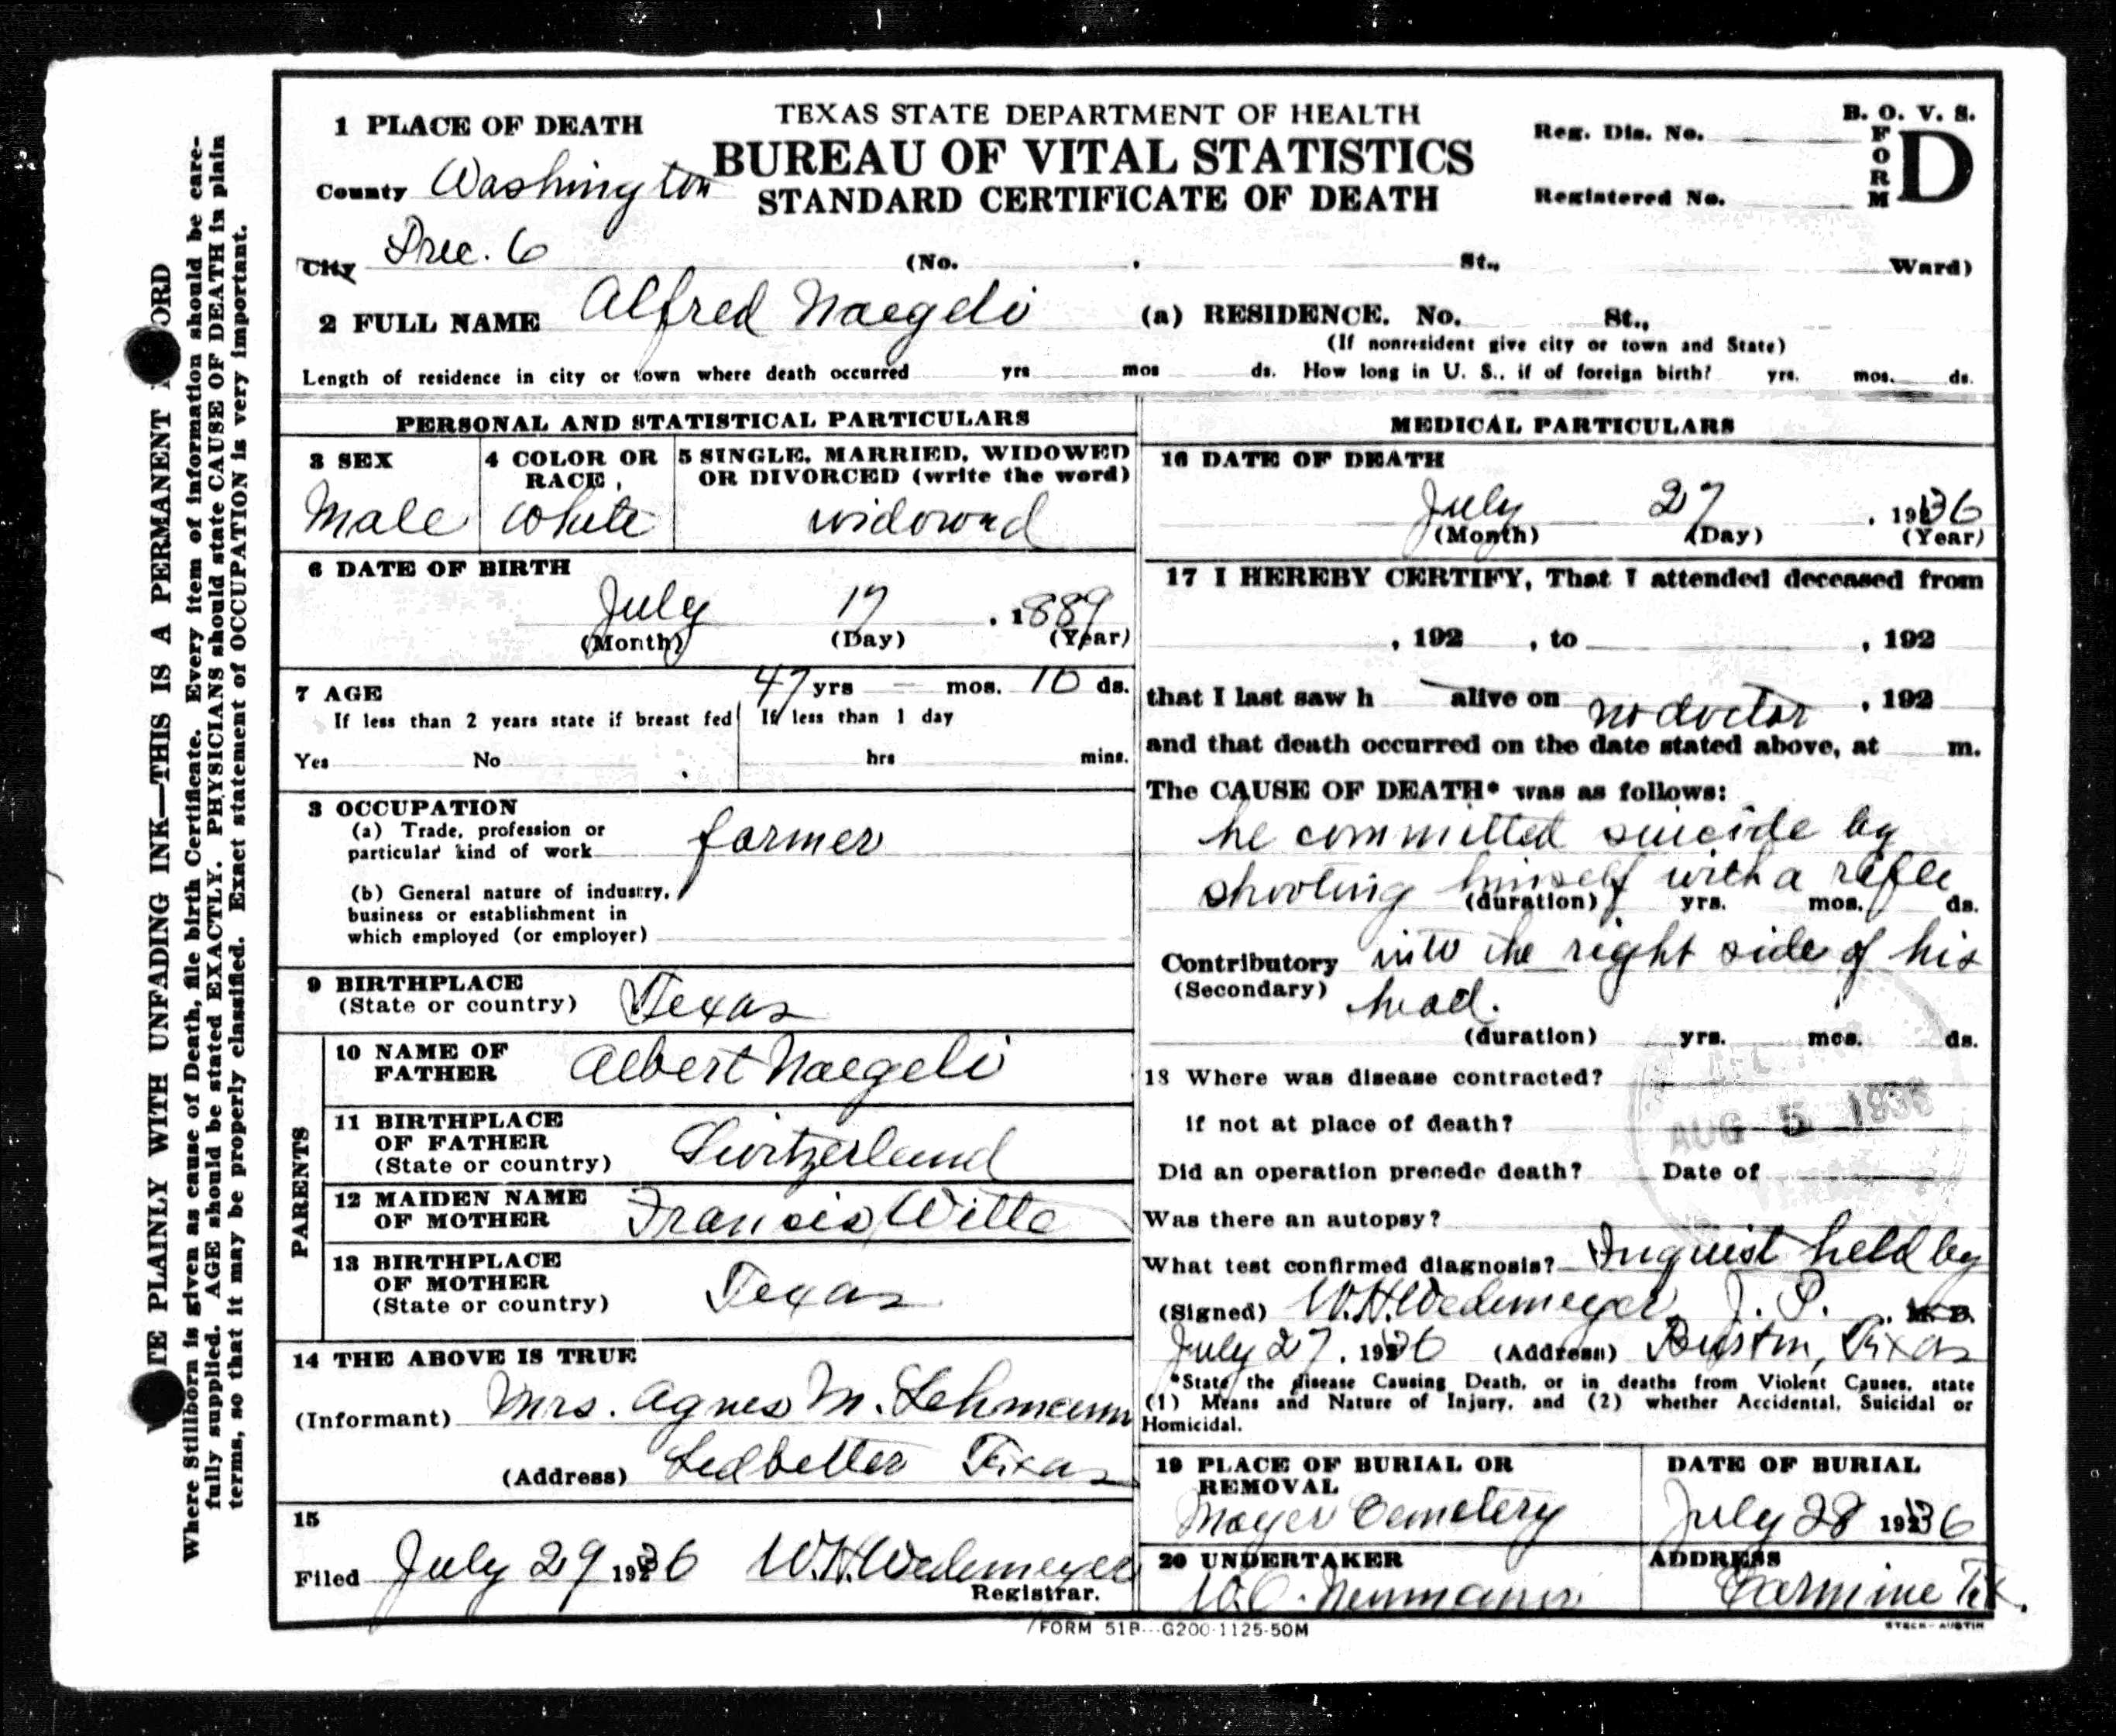 TEXAS STATE DEPARTMENT OF HEALTH
BUREAU OF VITAL STATISTICS
STANDARD CERTIFICATE OF DEATH
B. O. V. S.
FORM D
Reg. Dis. No.
Registered No.
1 PLACE OF DEATH
County Washington
City Prec. 6 (No. St., Ward)
2 FULL NAME Alfred Naegeli (a) RESIDENCE. No. St.,
(If nonresident give city or town and State)
Length of residence in city or town where death occurred yrs mos ds. How long in U. S., if of foreign birth? yrs. mos. ds.
PERSONAL AND STATISTICAL PARTICULARS
3 SEX
Male
4 COLOR OR RACE
White
5 SINGLE, MARRIED, WIDOWED
OR DIVORCED (write the word)
widowed
6 DATE OF BIRTH
July 17, 1889
(Month) (Day) (Year)
7 AGE 47 yrs — mos. 10 ds.
If less than 2 years state if breast fed If less than 1 day
Yes No hrs mins.
8 OCCUPATION
(a) Trade, profession or
particular kind of work farmer
(b) General nature of industry,
business or establishment in
which employed (or employer)
9 BIRTHPLACE
(State or country) Texas
PARENTS
10 NAME OF
FATHER Albert Naegeli
11 BIRTHPLACE
OF FATHER
(State or country) Switzerland
12 MAIDEN NAME
OF MOTHER Francis Witte
13 BIRTHPLACE
OF MOTHER
(State or country) Texas
14 THE ABOVE IS TRUE
(Informant) Mrs. Agnes M. Lehmann
(Address) Ledbetter Texas
15
Filed July 29 1936 W.H. Wedemeyer
Registrar.
MEDICAL PARTICULARS
16 DATE OF DEATH
July 27, 1936
(Month) (Day) (Year)
17 I HEREBY CERTIFY, That I attended deceased from
, 192 , to , 192
that I last saw h alive on no doctor, 192
and that death occurred on the date stated above, at m.
The CAUSE OF DEATH* was as follows:
he committed suicide by
shooting himself with a rifle
(duration) yrs. mos. ds.
Contributory into the right side of his
(Secondary) head.
(duration) yrs. mos. ds.
18 Where was disease contracted?
if not at place of death?
AUG 5 1936
Did an operation precede death? Date of
Was there an autopsy?
What test confirmed diagnosis? Inquist held by
(Signed) W.H. Wedemeyer, J. P. M. D.
July 27, 1936 (Address) Burton, Texas
*State the disease Causing Death, or in deaths from Violent Causes, state
(1) Means and Nature of Injury, and (2) whether Accidental, Suicidal or
Homicidal.
19 PLACE OF BURIAL OR
REMOVAL
Mayer Cemetery
DATE OF BURIAL
July 28 1936
20 UNDERTAKER
W.C. Neumann
ADDRESS
Carmine Tex.
FORM 51B---G200-1125-50M
STECK-AUSTIN
PLAINLY WITH UNFADING INK—THIS IS A PERMANENT
Where Stillborn is given as cause of Death, file birth Certificate. Every item of information should be care-
fully supplied. AGE should be stated EXACTLY. PHYSICIANS should state CAUSE OF DEATH in plain
terms, so that it may be properly classified. Exact statement of OCCUPATION is very important.